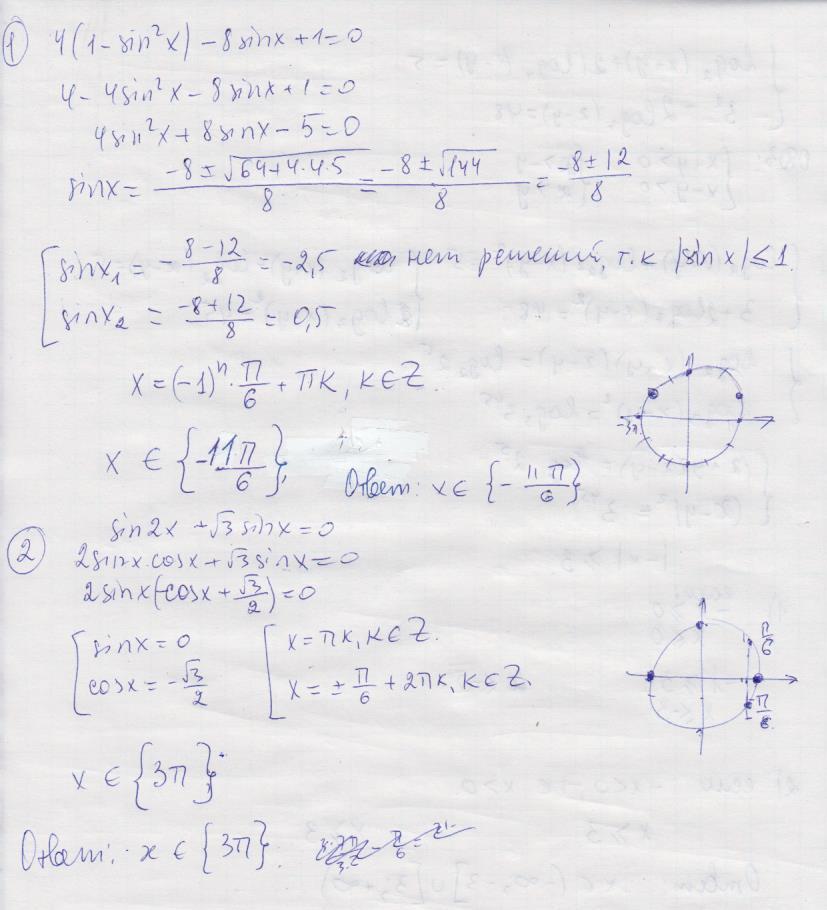 ① 4(1-sin²x)-8sinx+1=0
4-4sin²x-8sinx+1=0
4sin²x+8sinx-5=0
sinx= (-8±√(64+4·4·5))/8 = (-8±√144)/8 = (-8±12)/8
[ sinx₁ = -(8-12)/8 = -2,5 нет решений, т.к |sin x|≤1.
sinx₂ = (-8+12)/8 = 0,5
x=(-1)ⁿ·π/6+πk, k∈Z
-3π
x ∈ {-11π/6},
Ответ: x∈ {-11π/6}
② sin2x+√3sinx=0
2sinx·cosx+√3sinx=0
2sinx(-cosx+√3/2)=0
[ sinx=0 [ x=πk, k∈Z.
cosx=-√3/2 x=±π/6+2πk, k∈Z.
π/6
-π/6
x ∈ {3π}
Ответ: x∈{3π}.